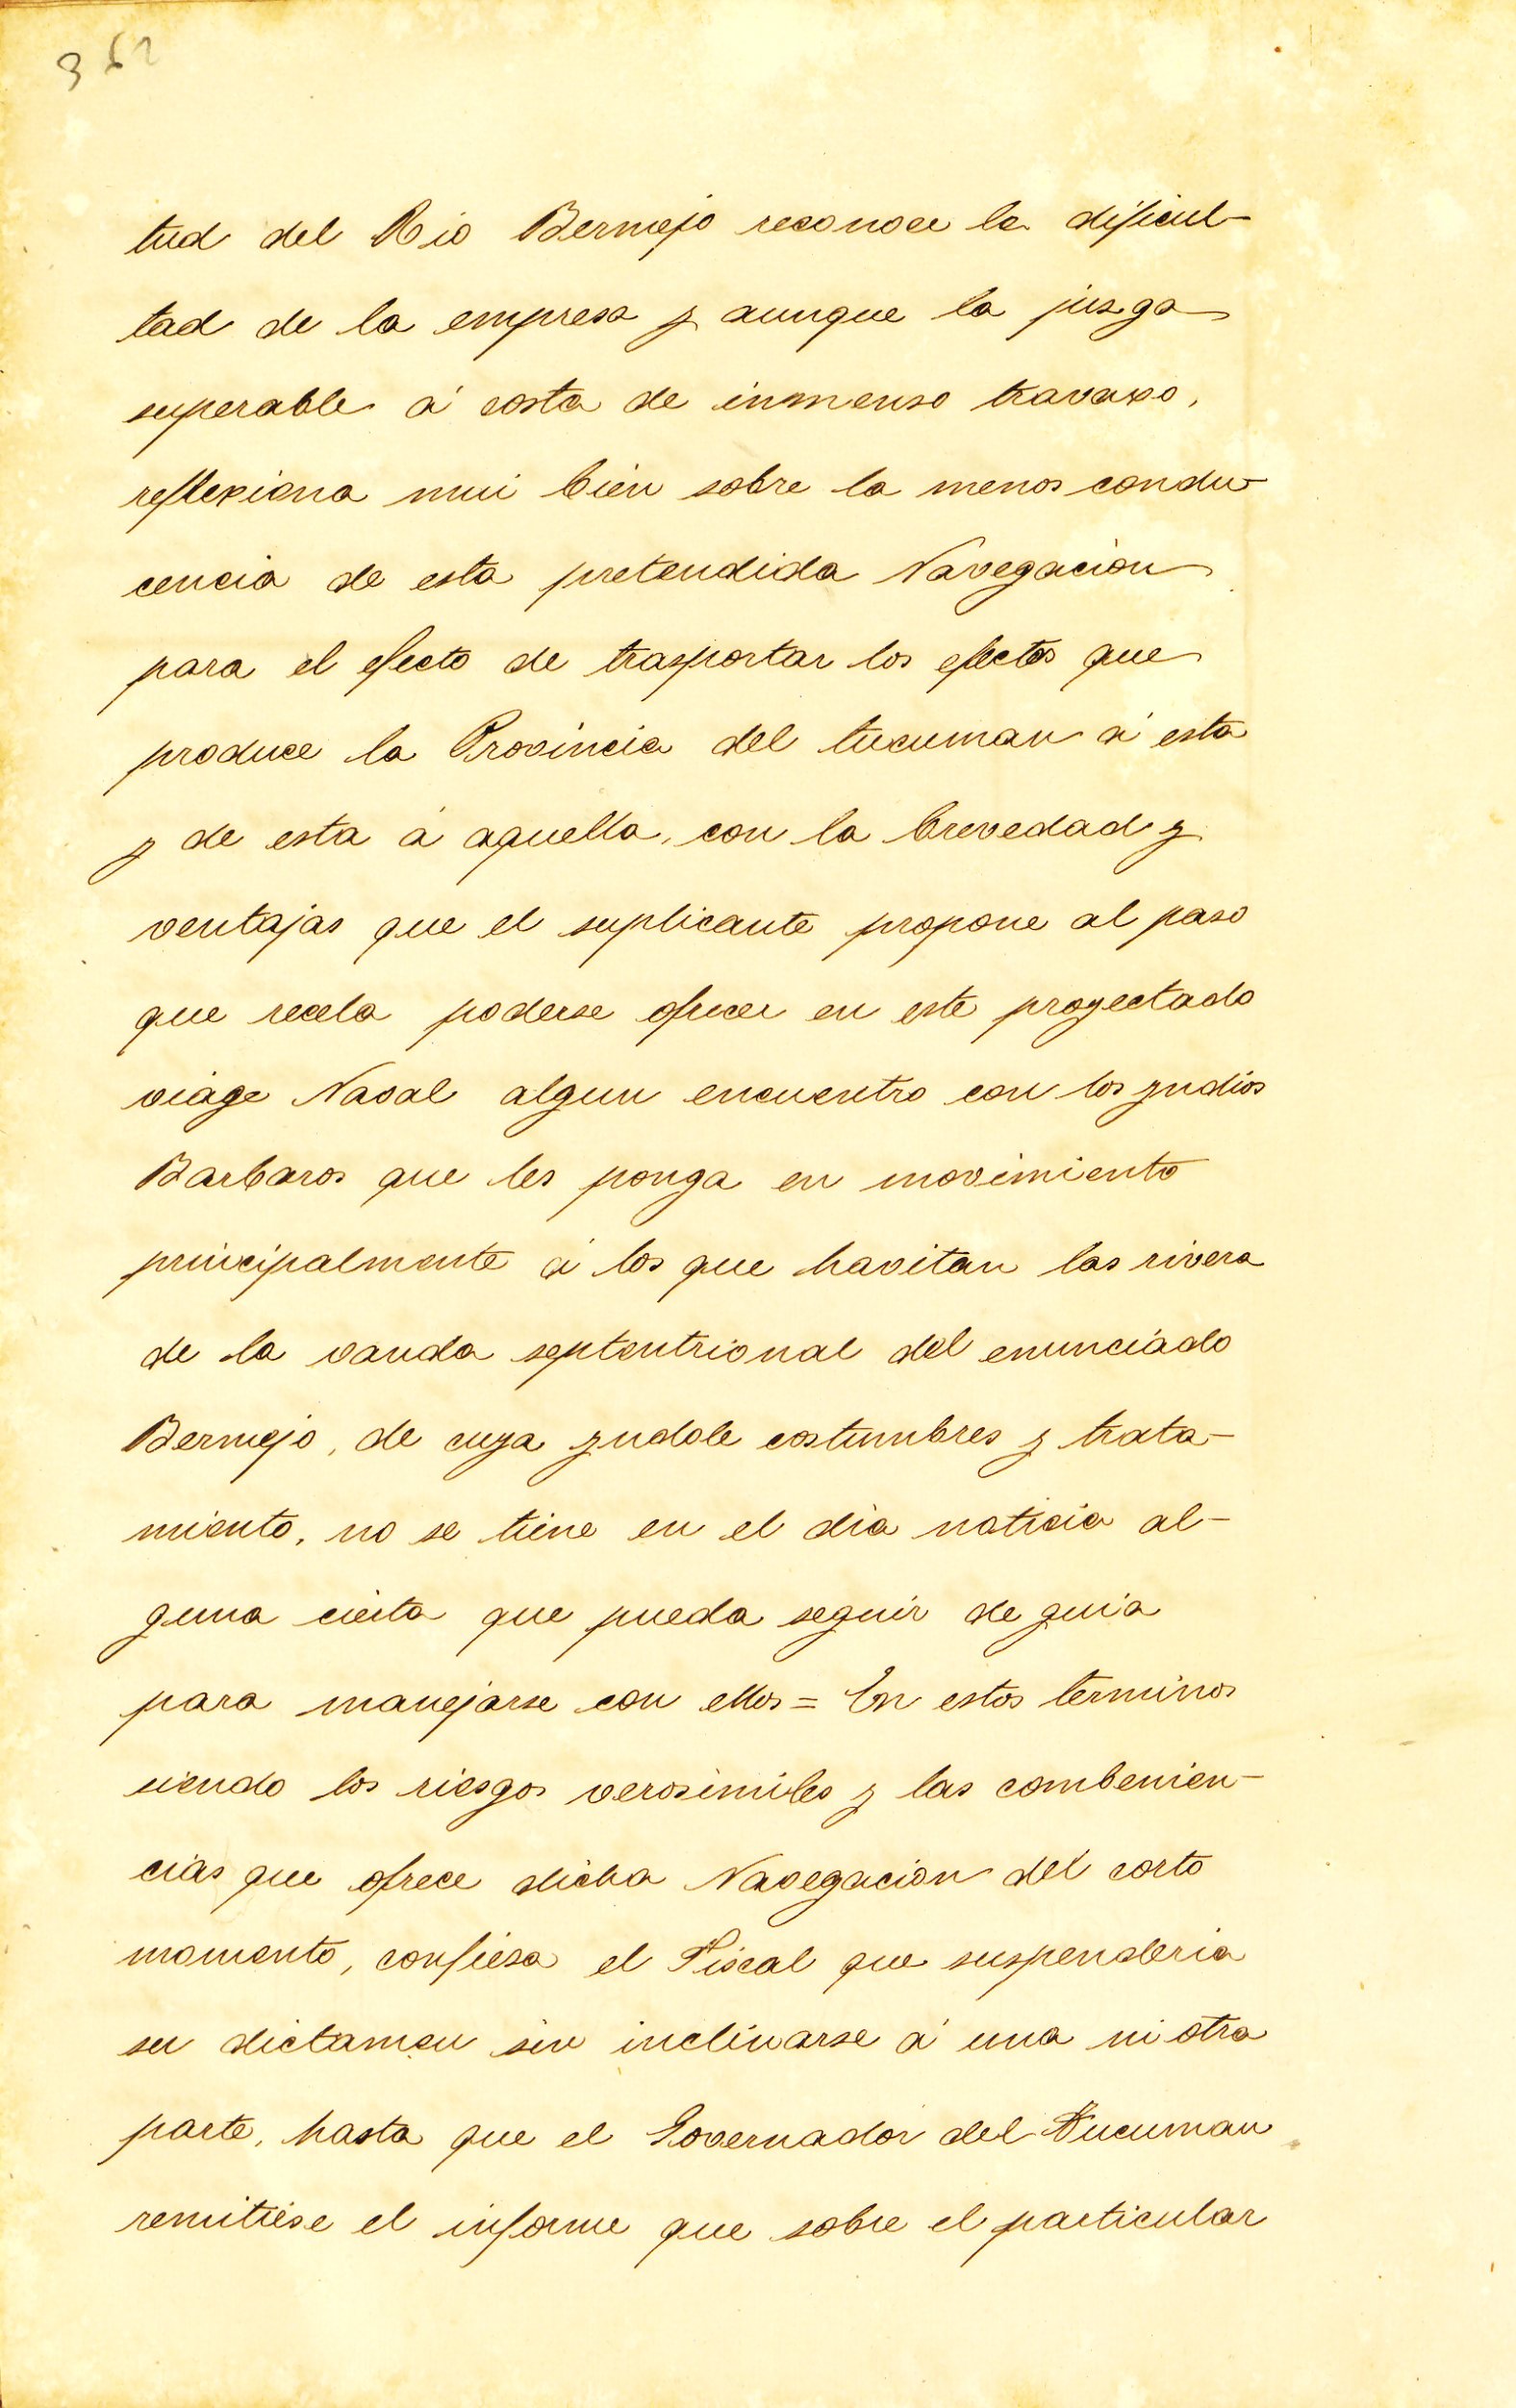 362
tud del Rio Bermejo reconoce la dificul-
tad de la empresa y aunque la jusga
superable á costa de inmenso travaxo,
reflexiona mui bien sobre la menos condu-
cencia de esta pretendida Navegacion
para el efecto de trasportar los efectos que
produce la Provincia del tucuman á esta
y de esta á aquella, con la brevedad y
ventajas que el suplicante propone al paso
que recela poderse ofrecer en este proyectado
viage Naval algun encuentro con los yndios
Barbaros que les ponga en movimiento
principalmente á los que havitan las rivera
de la vanda septentrional del enunciado
Bermejo, de cuya yndole costumbres y trata-
miento, no se tiene en el dia noticia al-
guna cierta que pueda seguir de guia
para manejarse con ellos = En estos terminos
siendo los riesgos verosimiles y las combenien-
cias que ofrece dicha Navegacion del corto
momento, confiesa el Fiscal que suspenderia
su dictamen sin inclinarse á una ni otra
parte, hasta que el Governador del Tucuman
remitiese el informe que sobre el particular